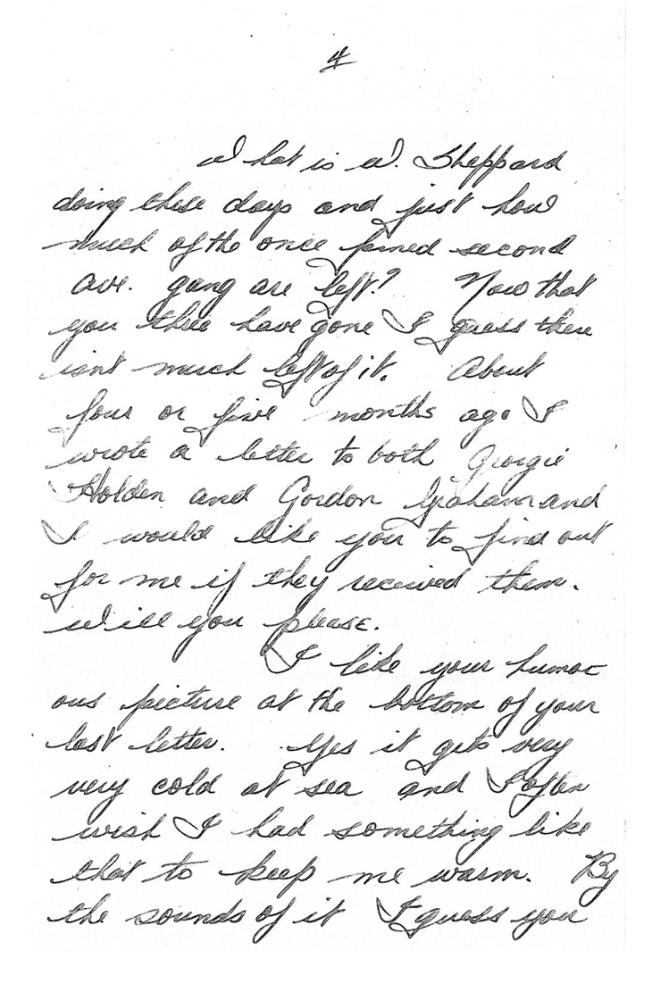 4
What is W. Sheppard
doing these days and just how
much of the once famed second
ave. gang are left? Now that
you three have gone I guess there
isnt much left of it. About
four or five months ago I
wrote a letter to both Georgie
Holden and Gordon Graham and
I would like you to find out
for me if they received them.
Will you please.
I like your humor
ous picture at the bottom of your
last letter. Yes it gets very
very cold at sea and I often
wish I had something like
that to keep me warm. By
the sounds of it I guess you